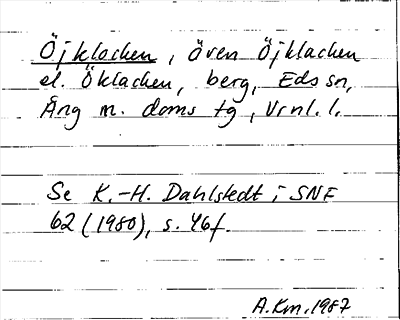 Öjklacken, även Öjklacken
el. Öklacken, berg, Eds sn,
Ång m. doms tg, Vrnl. l.
Se K.-H. Dahlstedt i SNF
62 (1980), s. 46f.
A.Km. 1987